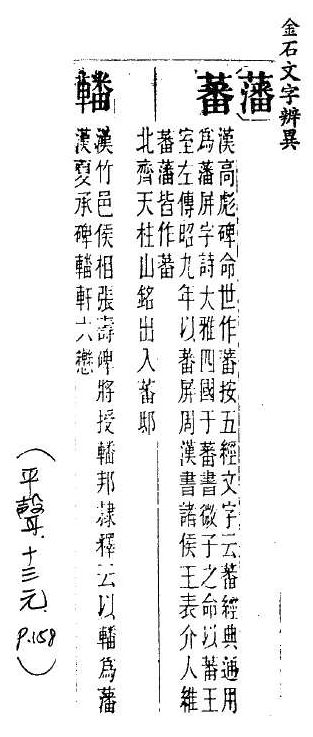 金石文字辨異
藩
蕃
漢高彪碑命世作蕃按五經文字云蕃經典通用
爲藩屏字詩大雅四國于蕃書微子之命以蕃王
室左傳昭九年以蕃屏周漢書諸侯王表介人維
蕃藩皆作蕃
北齊天柱山銘出入蕃邸
轓
漢竹邑侯相張壽碑將授轓邦隸釋云以轓爲藩
漢夏承碑轓軒六轡
(平聲.十三元. P.158)